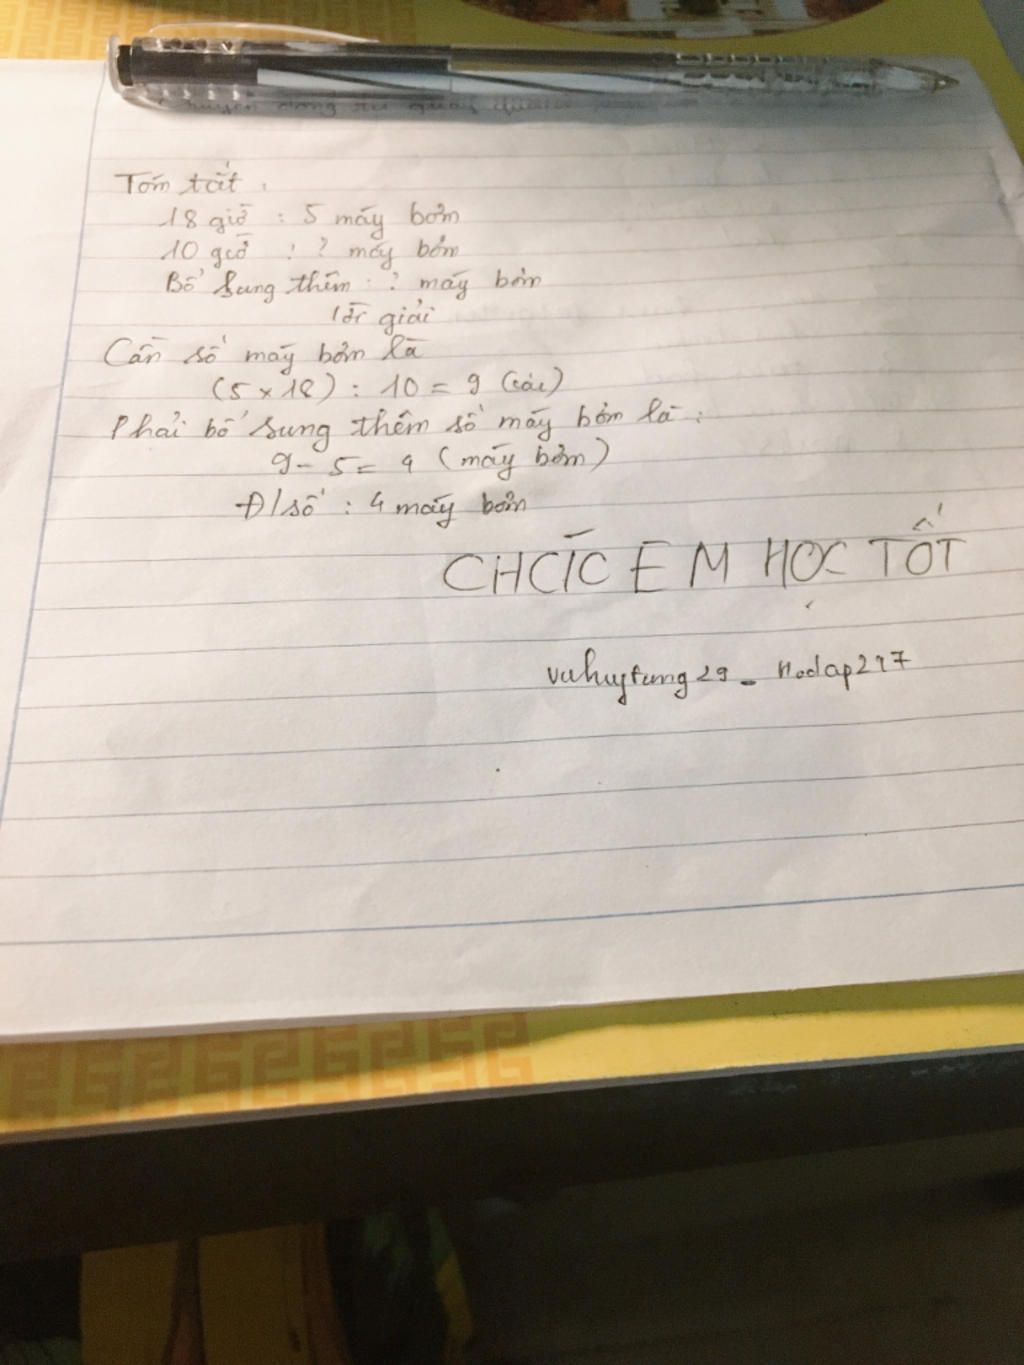 Tóm tắt :
18 giờ : 5 máy bơm
10 giờ : ? máy bơm
Bổ sung thêm : ? máy bơm
lời giải
Cần số máy bơm là
(5 x 18) : 10 = 9 (cái)
Phải bổ sung thêm số máy bơm là :
9 - 5 = 4 (máy bơm)
Đ/số : 4 máy bơm
CHÚC EM HỌC TỐT
vuhuytung29 - Hodap247